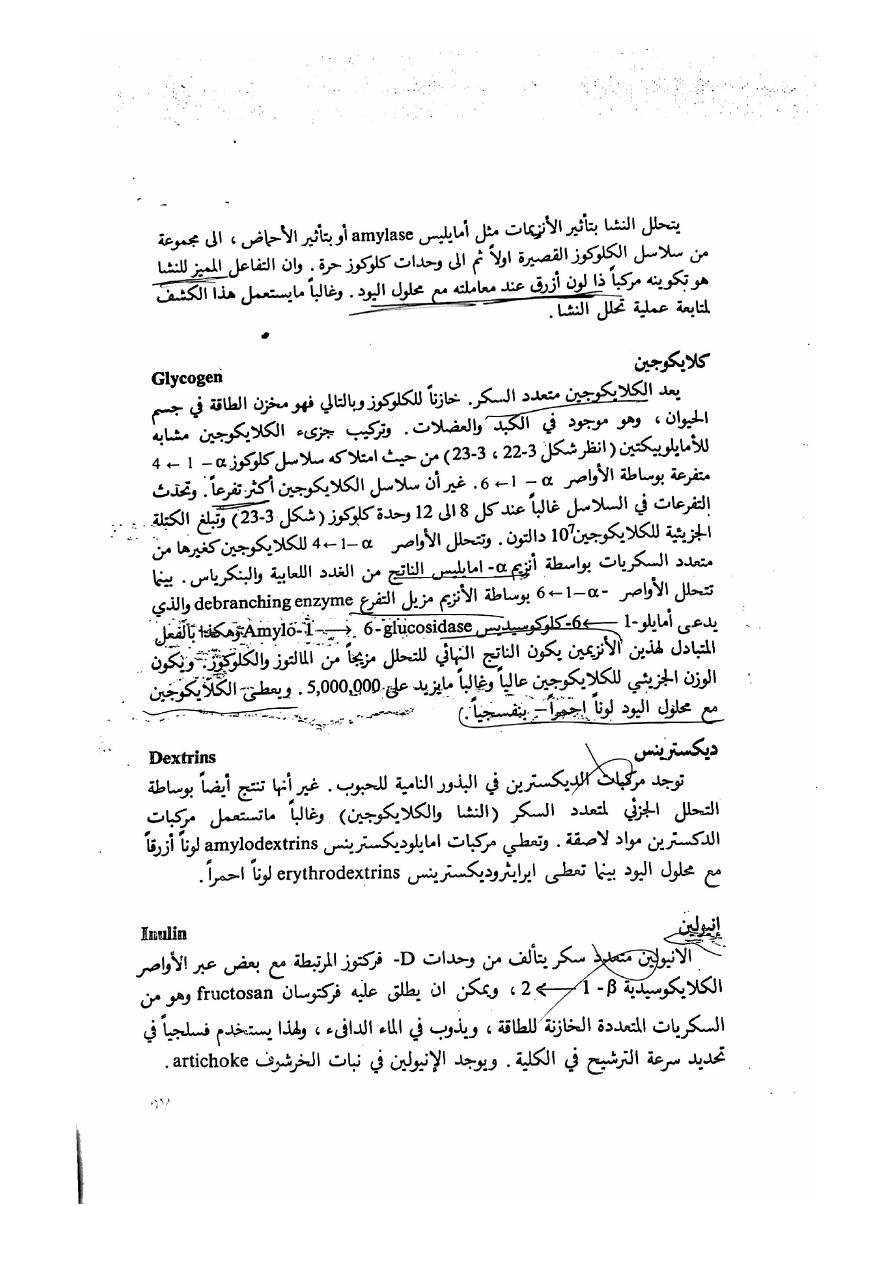 يتحلل النشا بتأثير الأنزيمات مثل أمايليس amylase أو بتأثير الأحماض ، الى مجموعة
من سلاسل الكلوكوز القصيرة اولاً ثم الى وحدات كلوكوز حرة . وان التفاعل المميز للنشا
هو تكوينه مركباً ذا لون أزرق عند معاملته مع محلول اليود . وغالباً مايستعمل هذا الكشف
لمتابعة عملية تحلل النشا .
كلايكوجين Glycogen
يعد الكلايكوجين متعدد السكر. خازناً للكلوكوز وبالتالي فهو مخزن الطاقة في جسم
الحيوان ، وهو موجود في الكبد والعضلات . وتركيب جزىء الكلايكوجين مشابه
للأمايلوبيكتين ( انظر شكل 3-22 ، 3-23) من حيث امتلاكه سلاسل كلوكوز α – 1 ← 4
متفرعة بوساطة الأواصر α – 1 ← 6 . غير أن سلاسل الكلايكوجين أكثر تفرعاً . وتحدث
التفرعات في السلاسل غالباً عند كل 8 الى 12 وحدة كلوكوز ( شكل 3-23 ) وتبلغ الكتلة
الجزيئية للكلايكوجين 10⁷ دالتون . وتتحلل الأواصر α –1←4 للكلايكوجين كغيرها من
متعدد السكريات بواسطة أنزيم α- امايليس الناتج من الغدد اللعابية والبنكرياس . بينما
تتحلل الأواصر -α–1←6 بوساطة الأنزيم مزيل التفرع debranching enzyme والذي
يدعى أمايلو-1 ←6-كلوكوسيديس Amylo-1 → 6-glucosidase وهكذا بالفعل
المتبادل لهذين الأنزيمين يكون الناتج النهائي للتحلل مزيجاً من المالتوز والكلوكوز . ويكون
الوزن الجزيئي للكلايكوجين عالياً وغالباً مايزيد على 5,000,000 . ويعطى الكلايكوجين
مع محلول اليود لوناً احمراً – بنفسجياً .
ديكسترينس Dextrins
توجد مركبات الديكسترين في البذور النامية للحبوب . غير أنها تنتج أيضاً بوساطة
التحلل الجزئي لمتعدد السكر ( النشا والكلايكوجين ) وغالباً ماتستعمل مركبات
الدكسترين مواد لاصقة . وتعطي مركبات امايلوديكسترينس amylodextrins لوناً أزرقاً
مع محلول اليود بينما تعطى ايرايثروديكسترينس erythrodextrins لوناً احمراً .
إنيولين Inulin
الانيولين متعدد سكر يتألف من وحدات D- فركتوز المرتبطة مع بعض عبر الأواصر
الكلايكوسيدية β - 1 ← 2 ، ويمكن ان يطلق عليه فركتوسان fructosan وهو من
السكريات المتعددة الخازنة للطاقة ، ويذوب في الماء الدافىء ، ولهذا يستخدم فسلجياً في
تحديد سرعة الترشيح في الكلية . ويوجد الإنيولين في نبات الخرشوف artichoke .